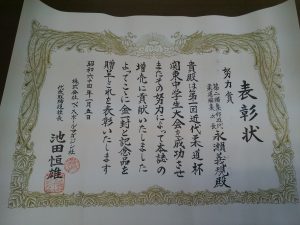 表彰状
努力賞
永瀬義規殿
貴殿は第一回近代柔道杯
関東中学生大会を成功させ
またその努力によって本誌の
増売に貢献いたしました
よってここに金一封と記念品を
贈呈し之れを表彰いたします
昭和六十四年一月五日
株式会社ベースボール・マガジン社
代表取締役社長
池田恒雄